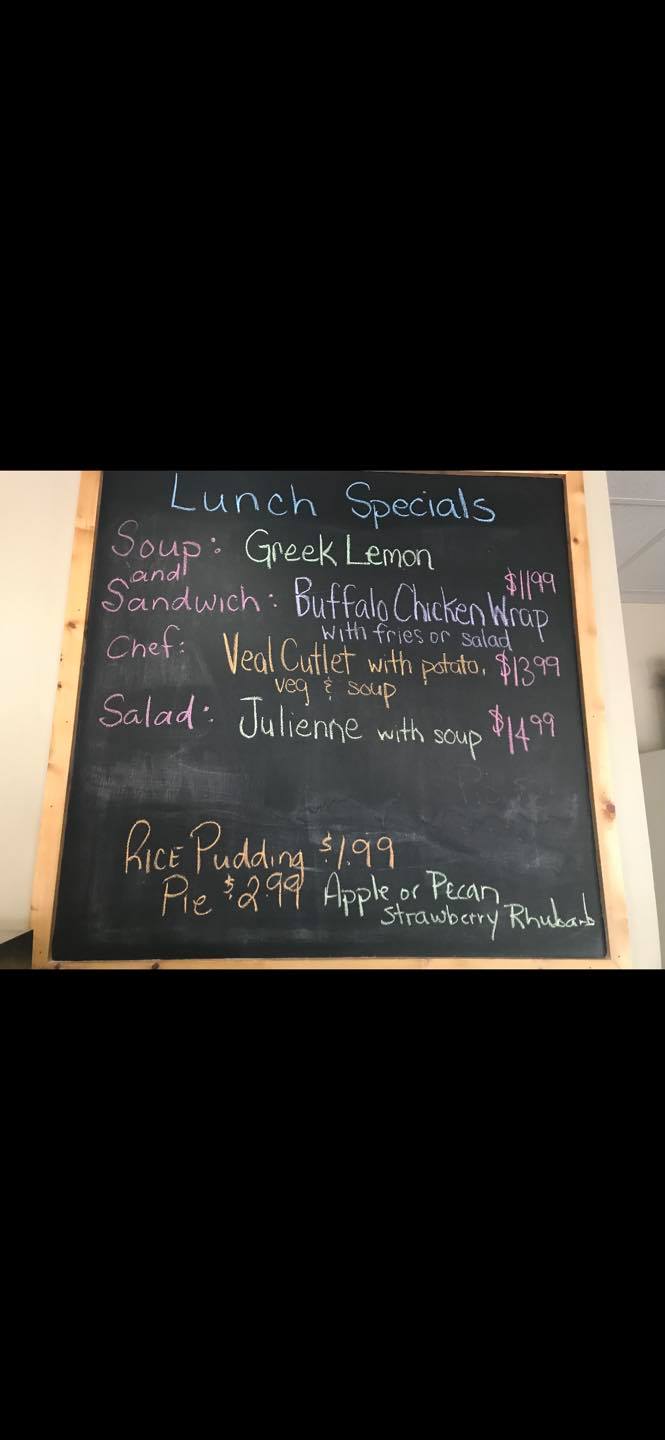 Lunch Specials
Soup: Greek Lemon
and $11.99
Sandwich: Buffalo Chicken Wrap
with fries or salad
Chef: Veal Cutlet with potato, $13.99
veg & soup
Salad: Julienne with soup $14.99
RICE Pudding $1.99
Pie $2.99 Apple or Pecan
Strawberry Rhubarb